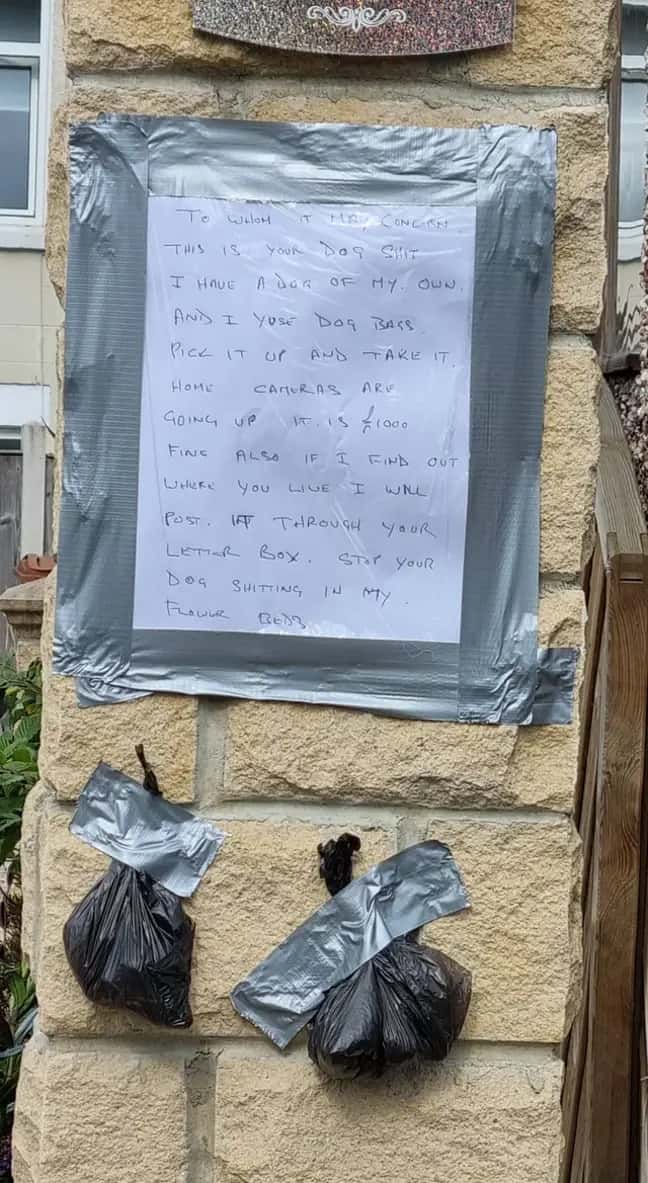 TO WHOM IT MAY CONCERN
THIS IS YOUR DOG SHIT
I HAVE A DOG OF MY. OWN.
AND I YUSE DOG BAGS.
PICK IT UP AND TAKE IT.
HOME CAMERAS ARE
GOING UP IT. IS £1000
FINE ALSO IF I FIND OUT
WHERE YOU LIVE I WILL
POST. IT THROUGH YOUR
LETTER BOX. STOP YOUR
DOG SHITTING IN MY.
FLOWER BEDS